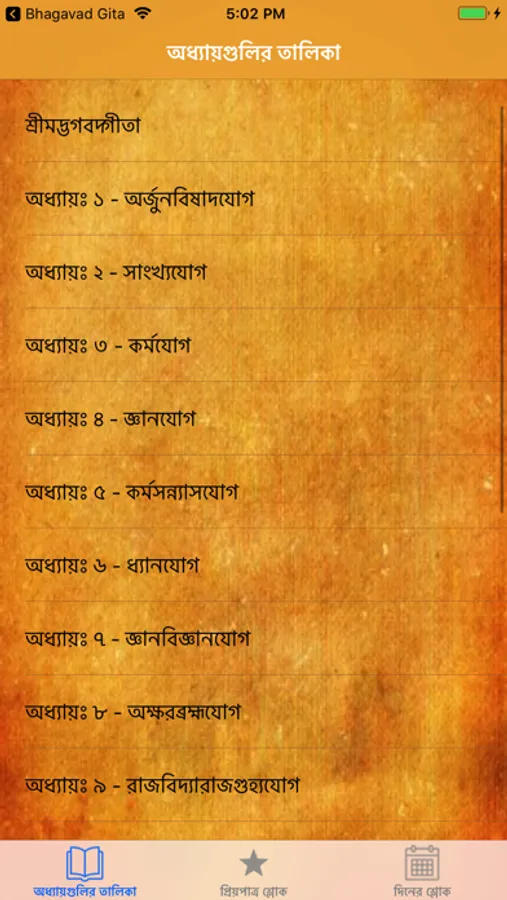 Bhagavad Gita
5:02 PM
অধ্যায়গুলির তালিকা
শ্রীমদ্ভগবদ্গীতা
অধ্যায়ঃ ১ - অর্জুনবিষাদযোগ
অধ্যায়ঃ ২ - সাংখ্যযোগ
অধ্যায়ঃ ৩ - কর্মযোগ
অধ্যায়ঃ ৪ - জ্ঞানযোগ
অধ্যায়ঃ ৫ - কর্মসন্ন্যাসযোগ
অধ্যায়ঃ ৬ - ধ্যানযোগ
অধ্যায়ঃ ৭ - জ্ঞানবিজ্ঞানযোগ
অধ্যায়ঃ ৮ - অক্ষরব্রহ্মযোগ
অধ্যায়ঃ ৯ - রাজবিদ্যারাজগুহ্যযোগ
অধ্যায়গুলির তালিকা
প্রিয়পাত্র শ্লোক
দিনের শ্লোক